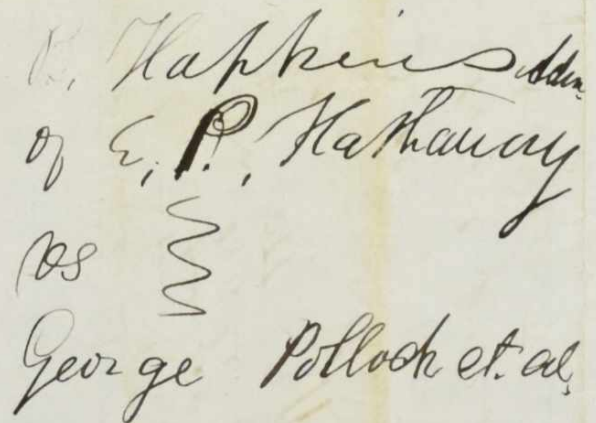 Hopkins Adm.
of E. P. Hathaway
vs
George Pollock et. al.